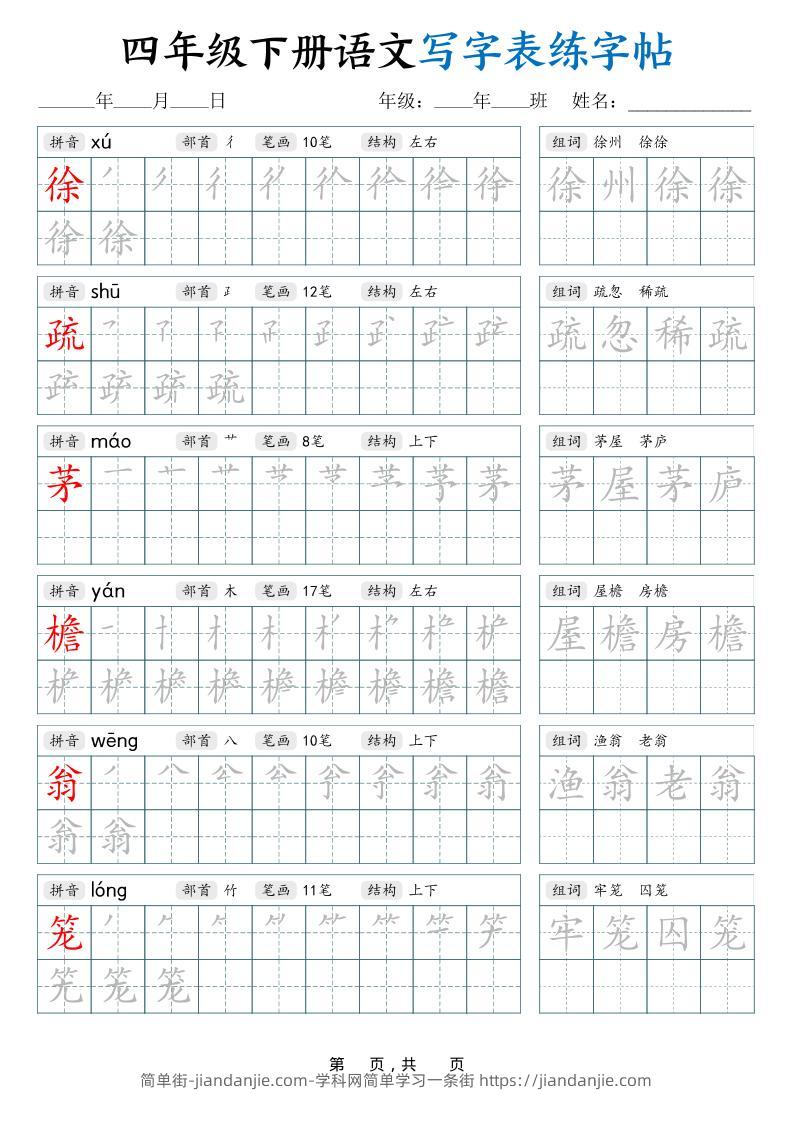 四年级下册语文写字表练字帖
______年____月____日 年级：____年____班 姓名：_____________
拼音 xú 部首 彳 笔画 10笔 结构 左右 组词 徐州 徐徐
徐 徐 州 徐 徐
徐
拼音 shū 部首 𤴔 笔画 12笔 结构 左右 组词 疏忽 稀疏
疏 疏 忽 稀 疏
疏
拼音 máo 部首 艹 笔画 8笔 结构 上下 组词 茅屋 茅庐
茅 茅 茅 屋 茅 庐
拼音 yán 部首 木 笔画 17笔 结构 左右 组词 屋檐 房檐
檐 屋 檐 房 檐
檐
拼音 wēng 部首 八 笔画 10笔 结构 上下 组词 渔翁 老翁
翁 渔 翁 老 翁
翁
拼音 lóng 部首 竹 笔画 11笔 结构 上下 组词 牢笼 囚笼
笼 牢 笼 囚 笼
笼
第 页，共 页
简单街-jiandanjie.com-学科网简单学习一条街 https://jiandanjie.com